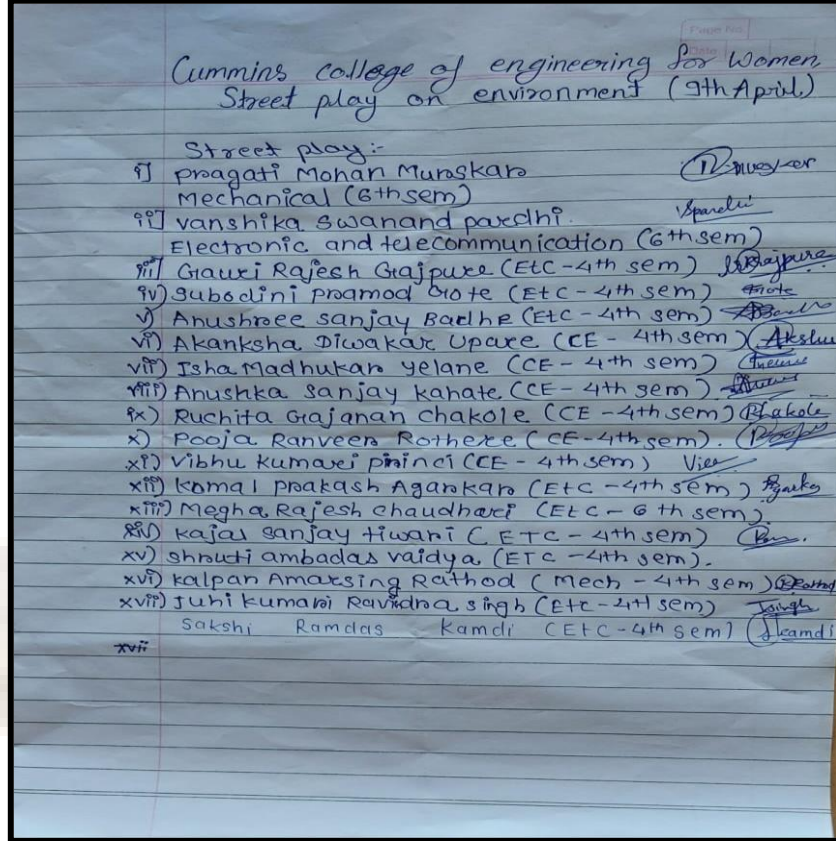 Page No.
Date
Cummins college of engineering for Women
Street play on environment (9th April)
Street play:-
i] pragati Mohan Muraskar
Mechanical (6th sem)
ii] vanshika swanand pardhi. Spardhi
Electronic and telecommunication (6th sem)
iii] Gauri Rajesh Gajpure (EtC - 4th sem)
iv) subodini pramod Gote (EtC - 4th sem) Gote
v) Anushree sanjay Badhe (EtC - 4th sem)
vi) Akanksha Diwakar Upare (CE - 4th sem)
vii) Isha Madhukar yelane (CE - 4th sem)
viii) Anushka sanjay kahate (CE - 4th sem)
ix) Ruchita Gajanan chakole (CE - 4th sem) Rhakole
x) Pooja Ranveer Rothere (CE - 4th sem).
xi) vibhu kumari (CE - 4th sem)
xii) komal prakash Agarkar (EtC - 4th sem)
xiii) Megha Rajesh chaudhari (EtC - 6th sem).
xiv) kajal sanjay tiwari (ETC - 4th sem)
xv) shruti ambadas vaidya (ETC - 4th sem).
xvi) kalpan Amarsing Rathod (Mech - 4th sem)
xvii) Juhi kumari Ravindra singh (Etc - 4th sem) Jsingh
Sakshi Ramdas Kamdi (EtC - 4th sem) Skamdi
xvii